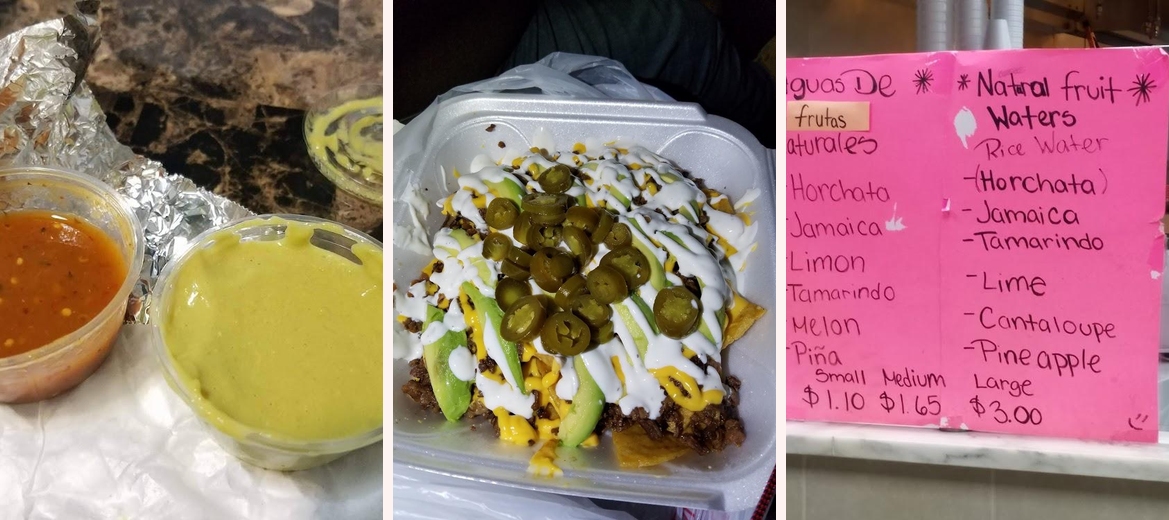 guas De
frutas
aturales
Horchata
- Jamaica
Limon
Tamarindo
- Melon
- Piña
Small Medium
$1.10 $1.65
Natral fruit
Waters
Rice Water
-(Horchata)
- Jamaica
- Tamarindo
- Lime
- Cantaloupe
- Pineapple
Large
$3.00